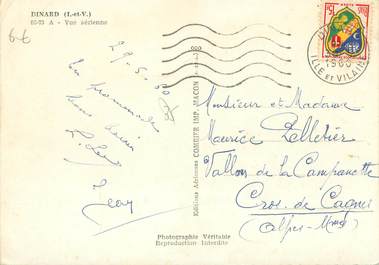 DINARD (I.-et-V.)
A - Vue aérienne
29-5-60
En promenade
bons baisers
Jean
Editions Aériennes COMBIER IMP. MACON
1960
ILLE ET VILAINE
Monsieur et Madame
Maurice Pelletier
Vallon de la Campanette
Cros. de Cagnes
(Alpes-Mmes)
Photographie Véritable
Reproduction Interdite